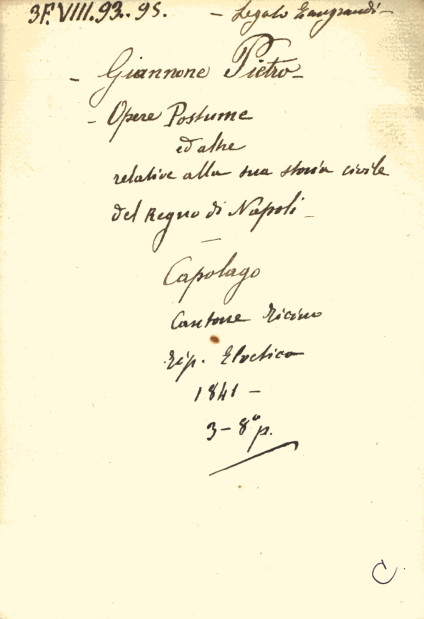 3F.VIII.93..95. - Legato Zangrandi -
- Giannone Pietro -
- Opere Postume
ed altre
relative alla sua storia civile
del Regno di Napoli -
Capolago
Cantone Ticino
Tip. Elvetica
1841 -
3 - 8° p.
C.